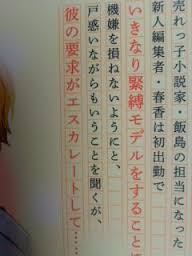 売れっ子小説家・飯島の担当になった
新人編集者・春香は初出勤で
いきなり緊縛モデルをすることに
機嫌を損ねないようにと、
戸惑いながらもいうことを聞くが、
彼の要求がエスカレートして……